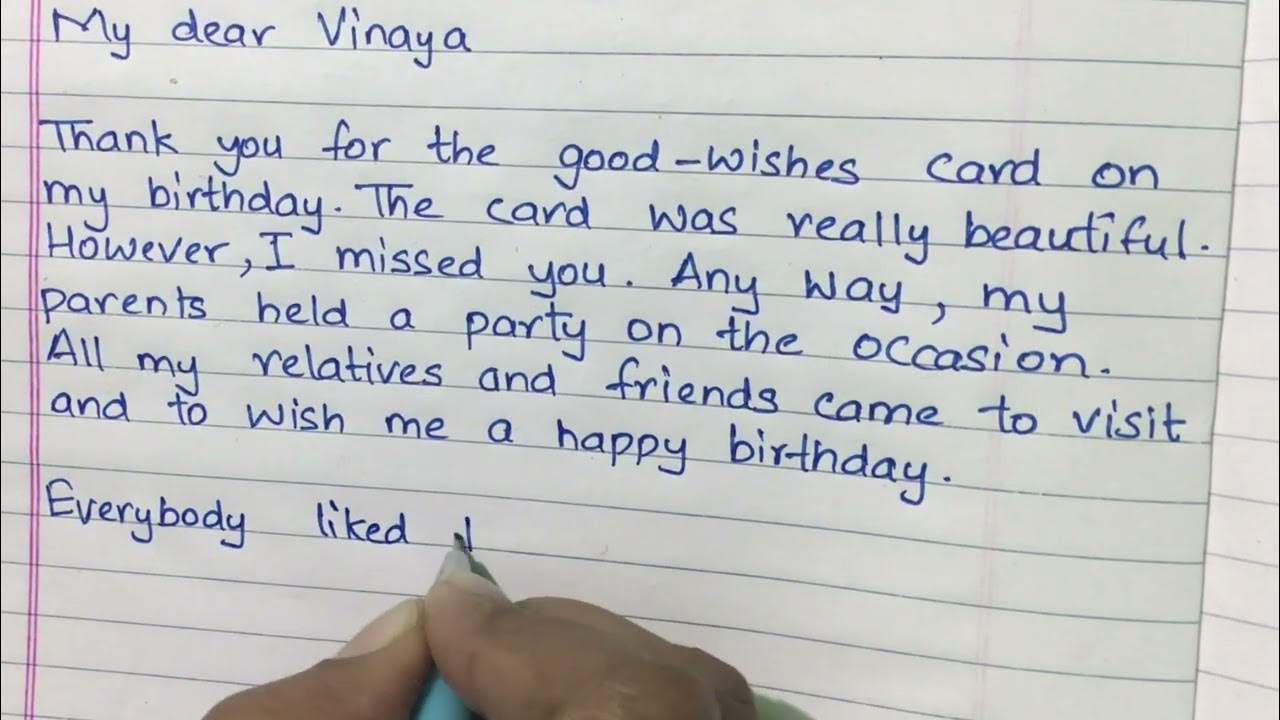 My dear Vinaya
Thank you for the good-wishes card on
my birthday. The card was really beautiful.
However, I missed you. Any way, my
parents held a party on the occasion.
All my relatives and friends came to visit
and to wish me a happy birthday.
Everybody liked